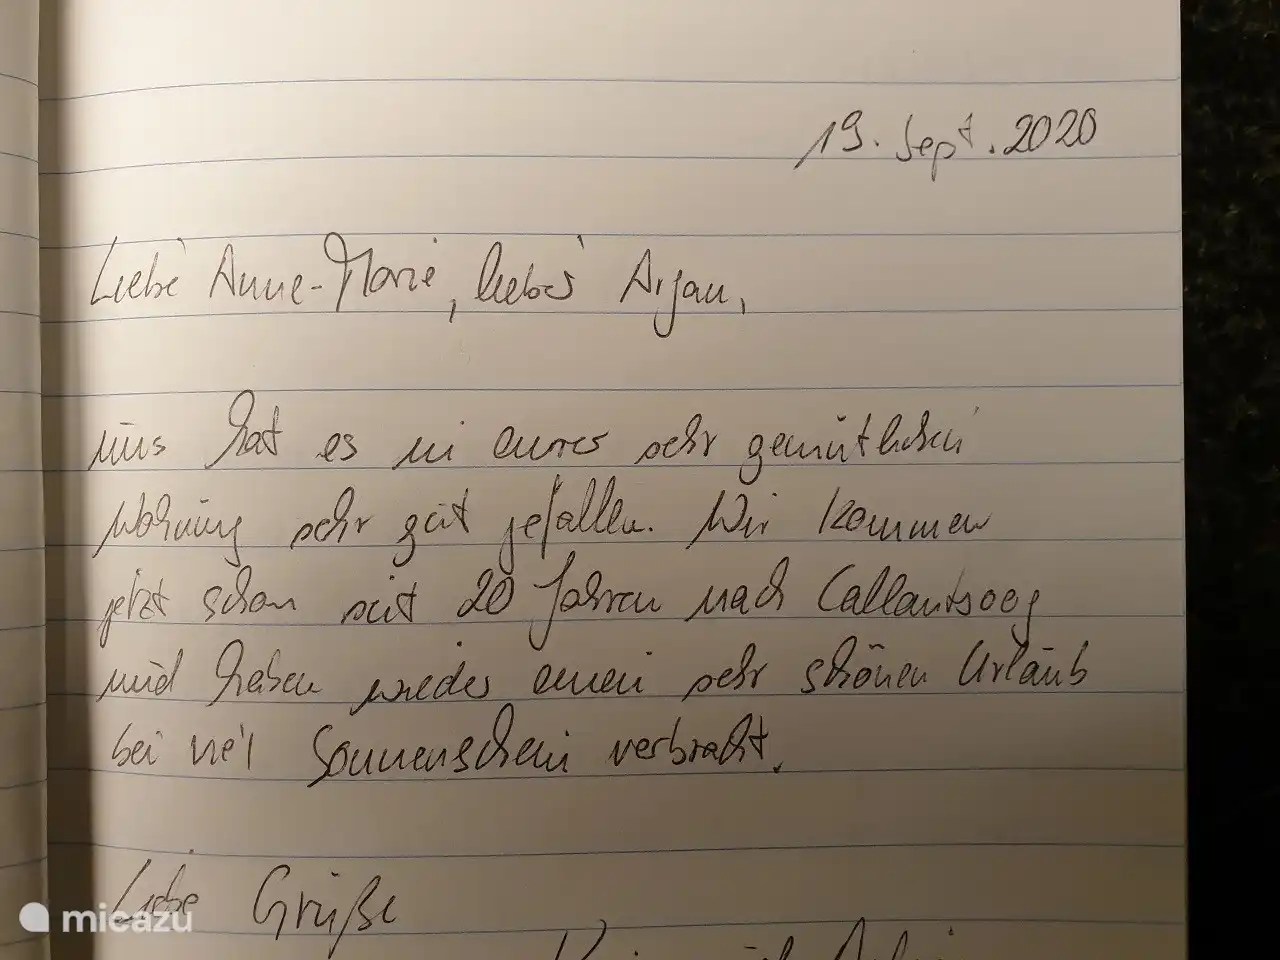 19. Sept. 2020
Liebe Anne-Marie, lieber Arjan,
uns hat es in eurer sehr gemütlichen
Wohnung sehr gut gefallen. Wir kommen
jetzt schon seit 20 Jahren nach Callantsoog
und haben wieder einen sehr schönen Urlaub
bei viel Sonnenschein verbracht.
Liebe Grüße
micazu